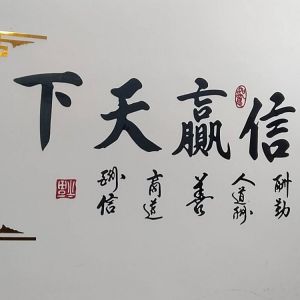 信贏天下
酬勤
人道酬
善
商道
酬信